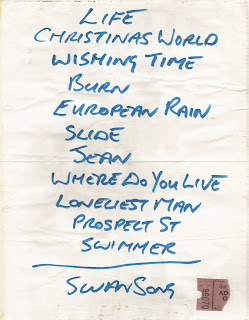 LIFE
CHRISTINAS WORLD
WISHING TIME
BURN
EUROPEAN RAIN
SLIDE
JEAN
WHERE DO YOU LIVE
LONELIEST MAN
PROSPECT ST
SWIMMER
SWANSONG